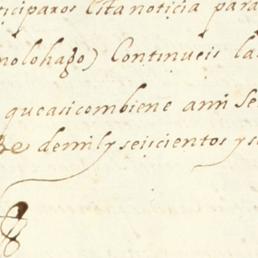 ticiparos esta noticia para
nolohago) Continueis la
queasicombiene ami se
de demil y seiscientos y s